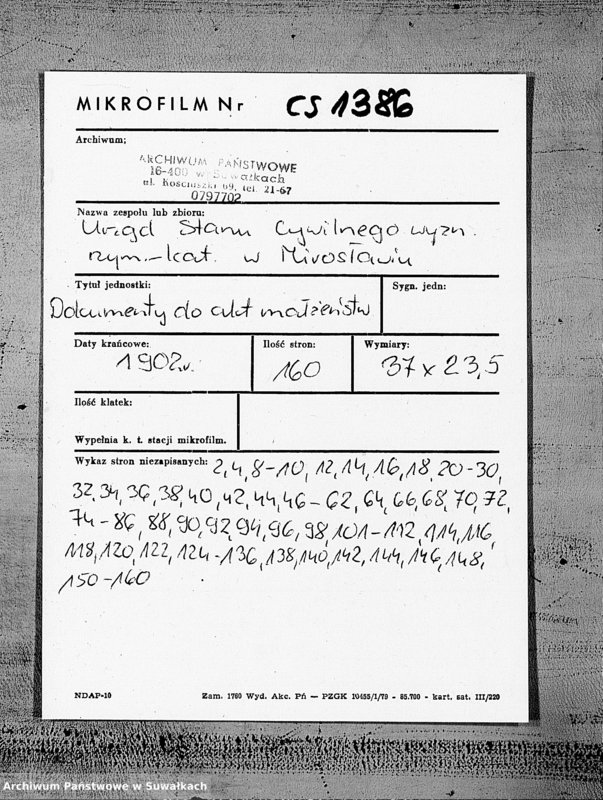 MIKROFILM Nr CS 1386
Archiwum;
ARCHIWUM PAŃSTWOWE
16-400 w Suwałkach
ul. Kościuszki 69, tel. 21-67
0797702
Nazwa zespołu lub zbioru:
Urząd Stanu Cywilnego wyzn.
rzym.-kat. w Mirosławiu
Tytuł jednostki: Sygn. jedn:
Dokumenty do akt małżeństw
Daty krańcowe: Ilość stron: Wymiary:
1902r. 160 37 x 23,5
Ilość klatek:
Wypełnia k. t. stacji mikrofilm.
Wykaz stron niezapisanych: 2, 4, 8-10, 12, 14, 16, 18, 20-30,
32, 34, 36, 38, 40, 42, 44, 46-62, 64, 66, 68, 70, 72,
74-86, 88, 90, 92, 94, 96, 98, 101-112, 114, 116,
118, 120, 122, 124-136, 138, 140, 142, 144, 146, 148,
150-160
NDAP-10 Zam. 1760 Wyd. Akc. Pń — PZGK 10455/1/79 - 85.700 - kart. sat. III/220
Archiwum Państwowe w Suwałkach